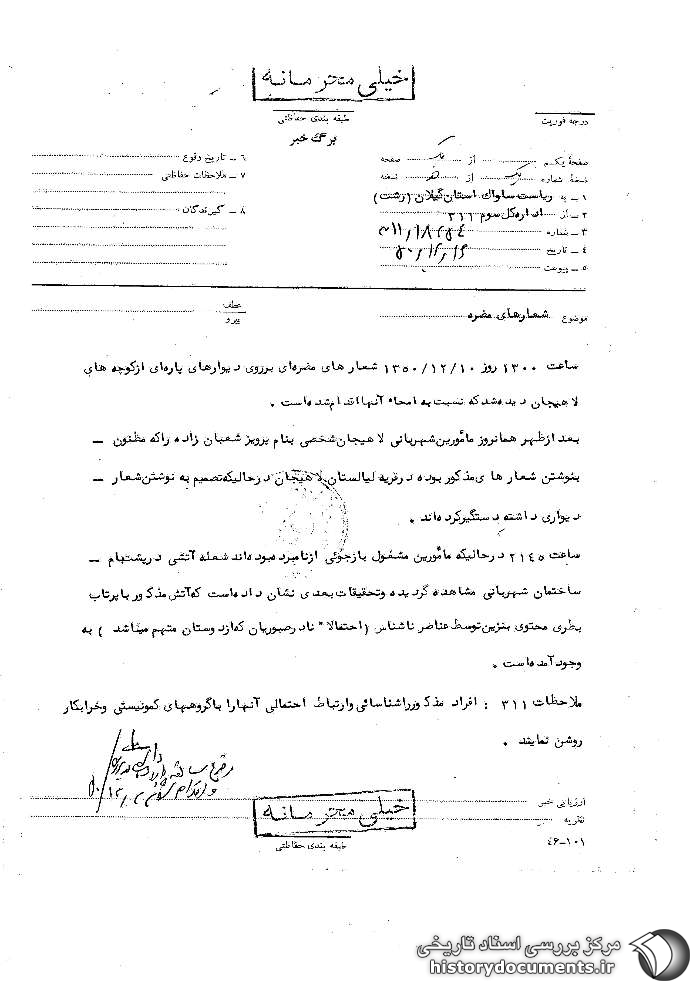 خیلی محرمانه
طبقه بندی حفاظتی
برگ خبر
درجه فوریت
صفحهٔ یکم از یک صفحه
نسخهٔ شماره یک از نسخه
۱ – به ریاست ساواک استان گیلان (رشت)
۲ – از اداره کل سوم ۳۱۱
۳ – شماره
۴ – تاریخ
۵ – پیوست
۶ – تاریخ وقوع
۷ – ملاحظات حفاظتی
۸ – گیرندگان
موضوع شعارهای مضره
عطف
پیرو
ساعت ۱۳۰۰ روز ۱۳۵۰/۱۲/۱۰ شعار های مضره‌ای برروی دیوارهای پاره‌ای ازکوچه های
لاهیجان دیده‌شد که نسبت به امحاء آنها اقدام‌شده‌است .
بعد ازظهر همانروز مأمورین‌شهربانی لاهیجان‌شخصی بنام پرویز شعبان زاده راکه مظنون –
بنوشتن شعار های‌مذکور بوده درقریه لیالستان لاهیجان درحالیکه‌تصمیم به نوشتن‌شعار –
دیواری داشته دستگیرکرده‌اند .
ساعت ۲۱۴۵ درحالیکه مأمورین مشغول بازجوئی ازنامبرده‌بوده‌اند شعله آتشی درپشتبام –
ساختمان شهربانی مشاهده گردیده وتحقیقات بعدی نشان داده‌است که‌آتش مذکور با پرتاب
بطری محتوی بنزین‌توسط عناصر ناشناس (احتمالا" نادرصبوریان که‌ازدوستان متهم میباشد ) به
وجود آمده‌است .
ملاحظات ۳۱۱ : افراد مذکور راشناسائی وارتباط احتمالی آنهارا باگروههای کمونیستی وخرابکار
روشن نمایند .
ارزیابی خبر
نظریه
خیلی محرمانه
طبقه بندی حفاظتی
۴۶-۱۰۱
مرکز بررسی اسناد تاریخی
historydocuments.ir